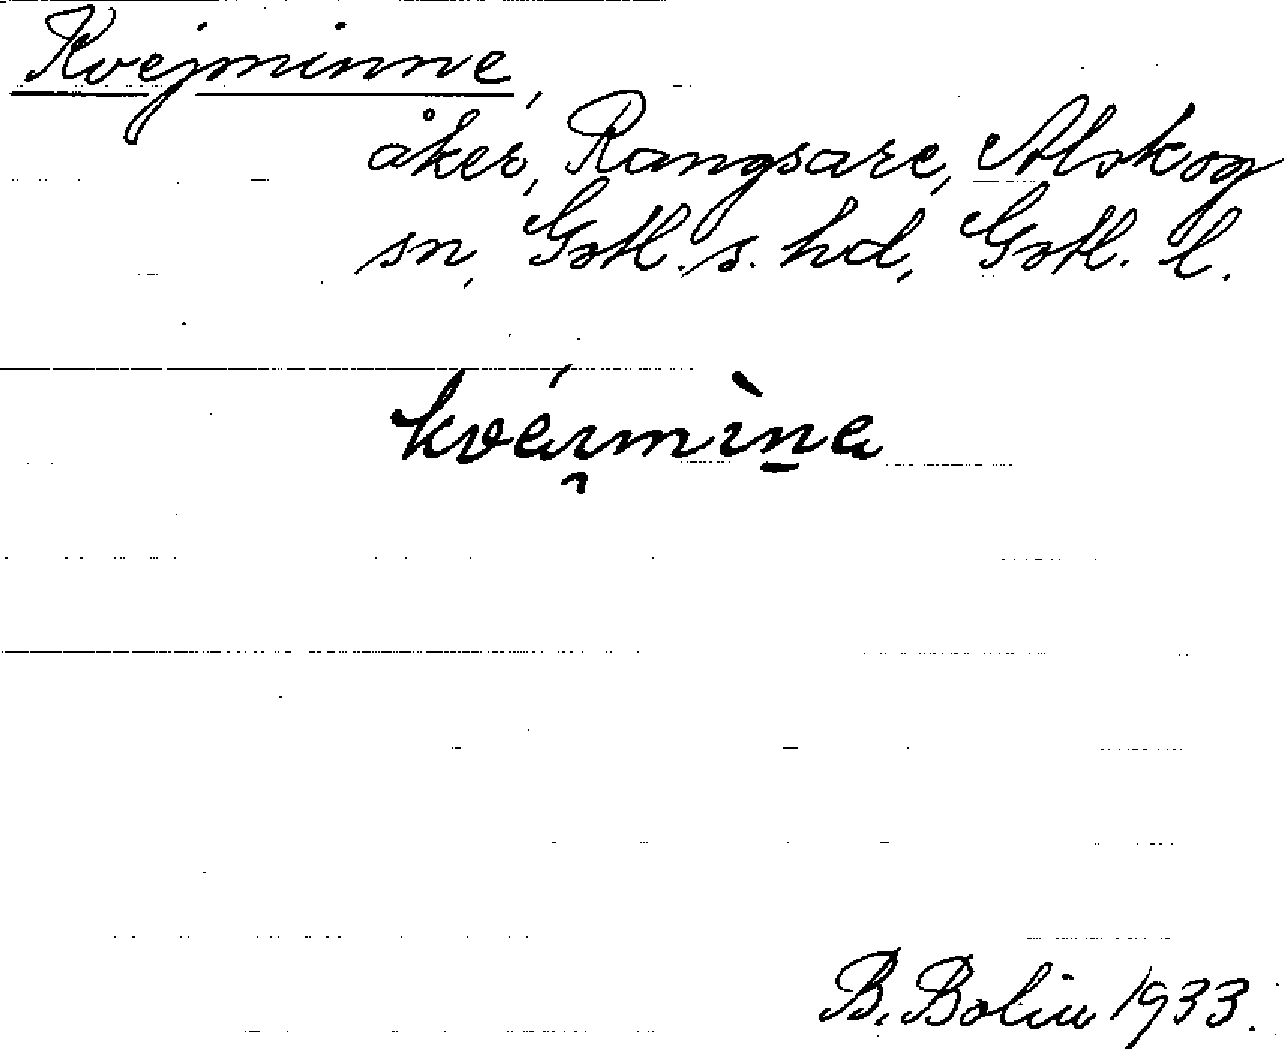 Kvejminne,
åker, Rangsare, Alskog
sn, Gotl. s. hd, Gotl. l.
B. Bolin 1933.